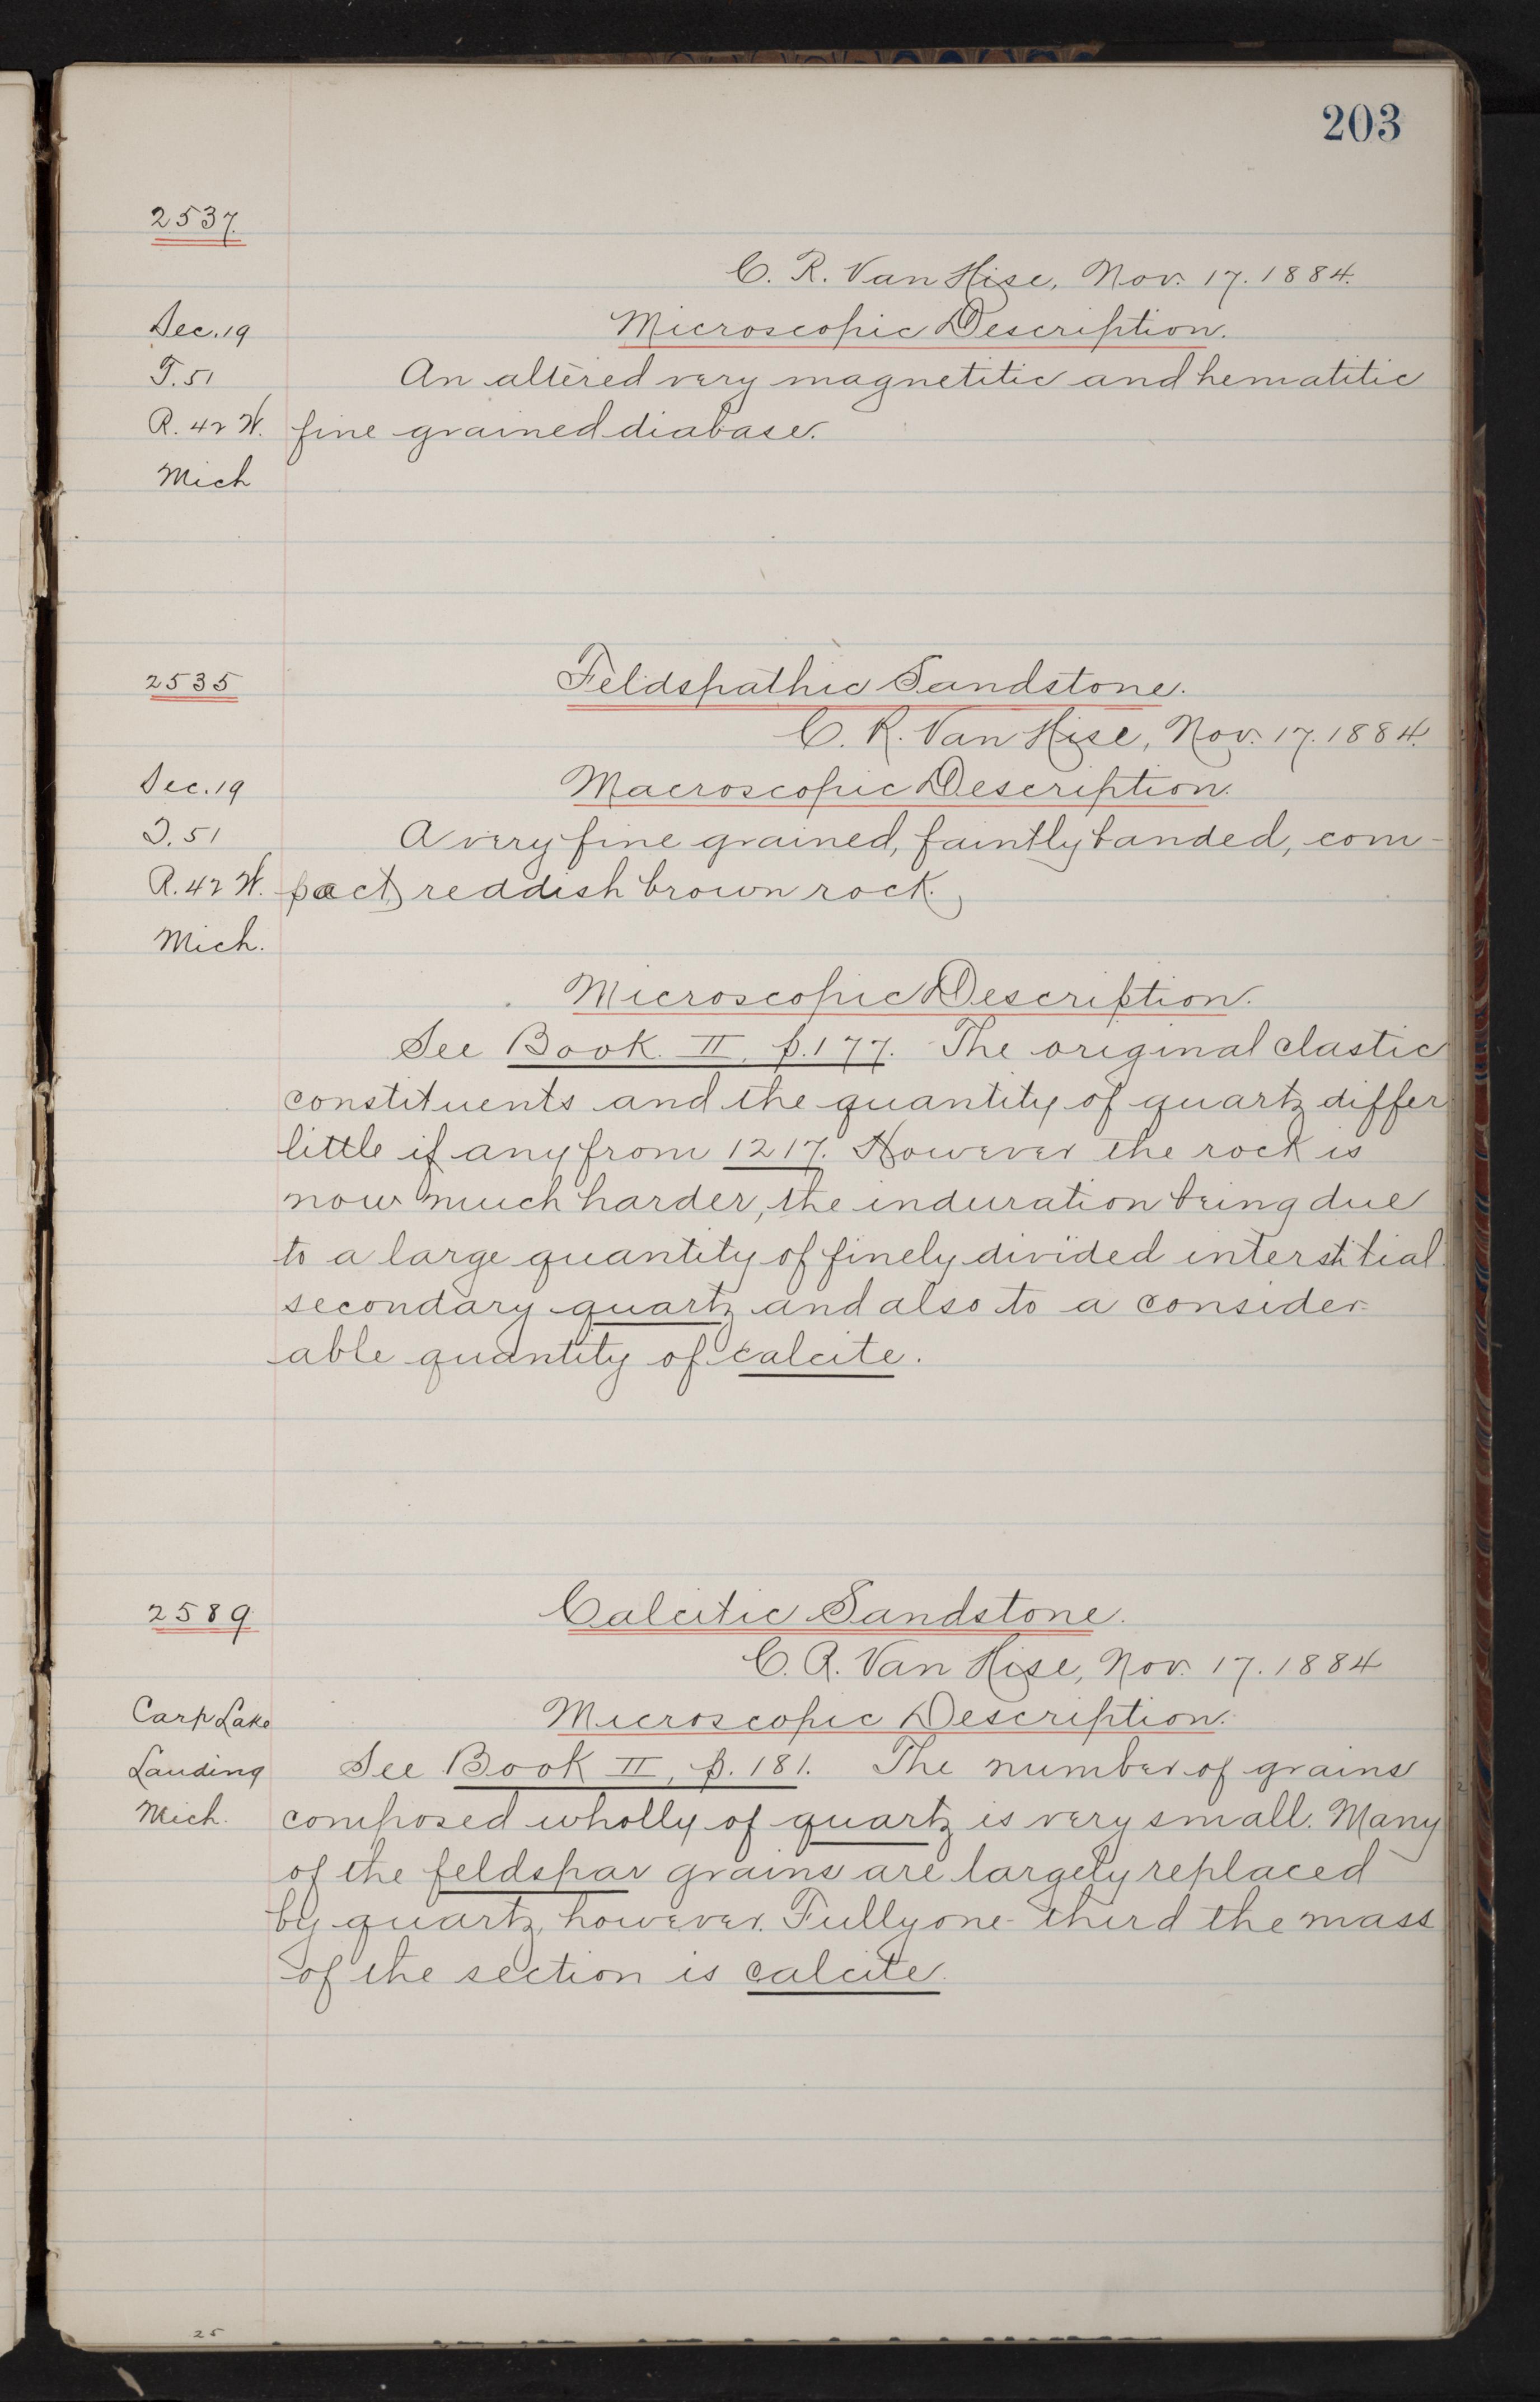 203
2537.
C. R. Van Hise, Nov. 17. 1884.
Sec. 19
Microscopic Description.
T. 51
An altered very magnetitic and hematitic
R. 42 W.
fine grained diabase.
Mich
2535
Feldspathic Sandstone.
C. R. Van Hise, Nov. 17. 1884.
Sec. 19
Macroscopic Description.
T. 51
A very fine grained, faintly banded, com-
R. 42 W.
pact, reddish brown rock.
Mich.
Microscopic Description.
See Book II, p. 177. The original clastic
constituents and the quantity of quartz differ
little if any from 1217. However the rock is
now much harder, the induration being due
to a large quantity of finely divided interstitial
secondary quartz and also to a consider-
able quantity of calcite.
2589
Calcitic Sandstone.
C. R. Van Hise, Nov. 17. 1884
Carp Lake
Microscopic Description.
Landing
See Book II, p. 181. The number of grains
Mich.
composed wholly of quartz is very small. Many
of the feldspar grains are largely replaced
by quartz, however. Fully one-third the mass
of the section is calcite.
25